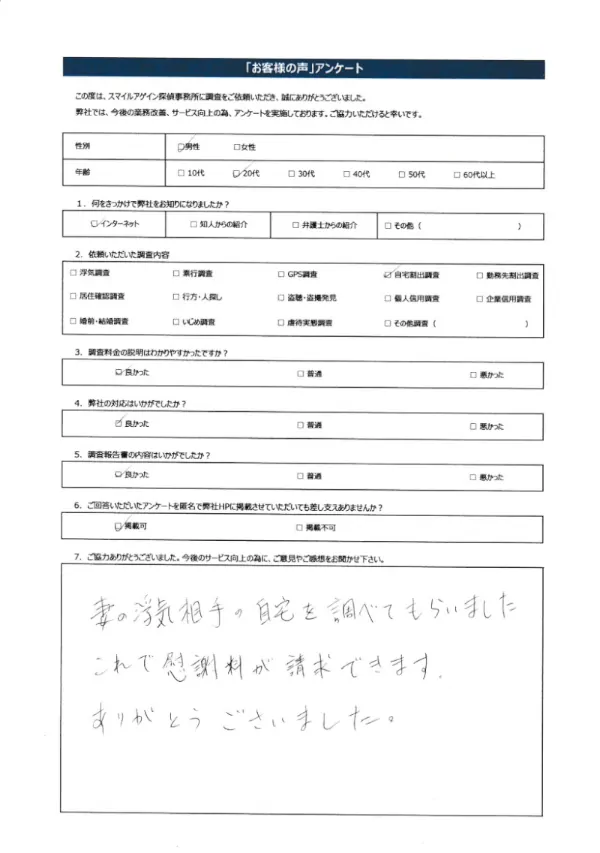 「お客様の声」アンケート
この度は、スマイルアゲイン探偵事務所に調査をご依頼いただき、誠にありがとうございました。
弊社では、今後の業務改善、サービス向上の為、アンケートを実施しております。ご協力いただけると幸いです。
性別 ☑男性 □女性
年齢 □10代 ☑20代 □30代 □40代 □50代 □60代以上
1. 何をきっかけで弊社をお知りになりましたか?
☑インターネット □知人からの紹介 □弁護士からの紹介 □その他( )
2. 依頼いただいた調査内容
□浮気調査 □素行調査 □GPS調査 ☑自宅割出調査 □勤務先割出調査
□居住確認調査 □行方・人探し □盗聴・盗撮発見 □個人信用調査 □企業信用調査
□婚前・結婚調査 □いじめ調査 □虐待実態調査 □その他調査( )
3. 調査料金の説明はわかりやすかったですか?
☑良かった □普通 □悪かった
4. 弊社の対応はいかがでしたか?
☑良かった □普通 □悪かった
5. 調査報告書の内容はいかがでしたか?
☑良かった □普通 □悪かった
6. ご回答いただいたアンケートを匿名で弊社HPに掲載させていただいても差し支えありませんか?
☑掲載可 □掲載不可
7. ご協力ありがとうございました。今後のサービス向上の為に、ご意見やご感想をお聞かせ下さい。
妻の浮気相手の自宅を調べてもらいました
これで慰謝料が請求できます。
ありがとうございました。